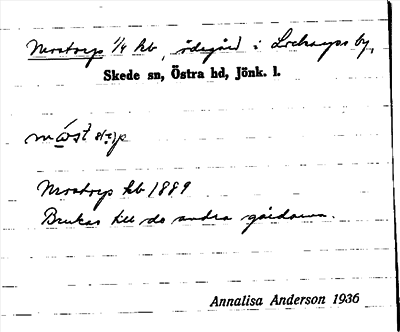 Mostorp 1/4 kb, ödegård i Lockarps by,
Skede sn, Östra hd, Jönk. l.
Mostorp kb 1889
Brukas till de andra gårdarna.
Annalisa Anderson 1936